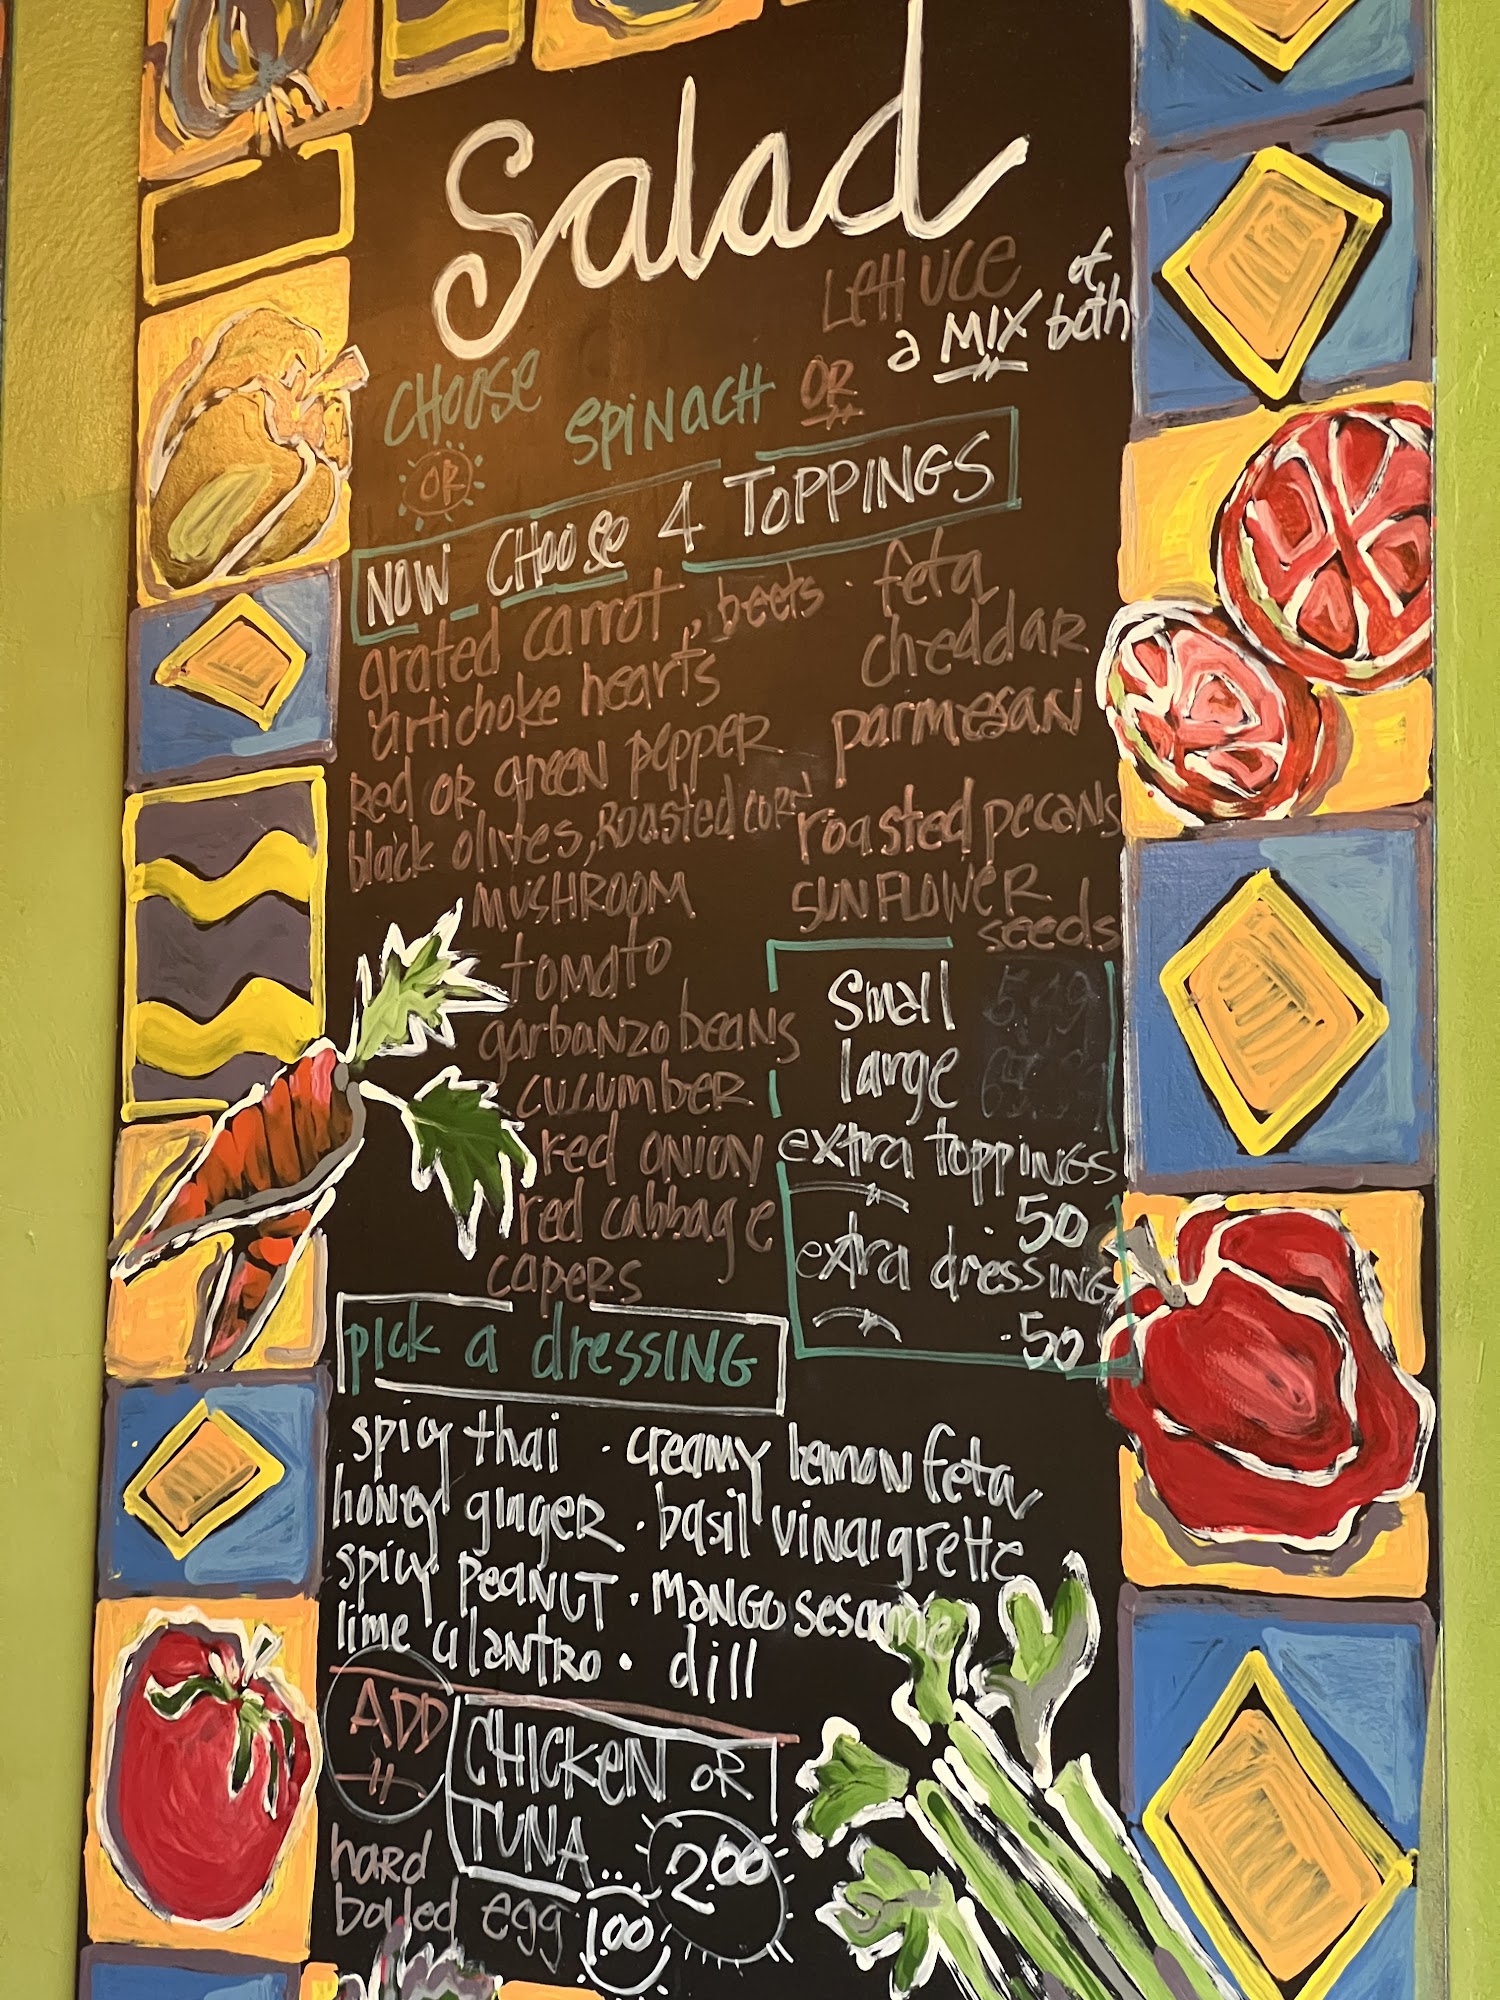 Salad
CHOOSE SPINACH OR LETTUCE
OR a MIX of both
NOW CHOOSE 4 TOPPINGS
grated carrot, beets · feta
artichoke hearts cheddar
Red OR green pepper parmesan
black olives, Roasted corn roasted pecans
MUSHROOM SUNFLOWER seeds
tomato
garbanzo beans
cucumber
red onion
red cabbage
capers
Small
large
extra toppings
50
extra dressing
.50
pick a dressing
spicy thai · creamy lemon feta
honey ginger · basil vinaigrette
spicy peanut · mango sesame
lime cilantro · dill
ADD CHICKEN OR
TUNA... 2.00
hard
boiled egg 1.00